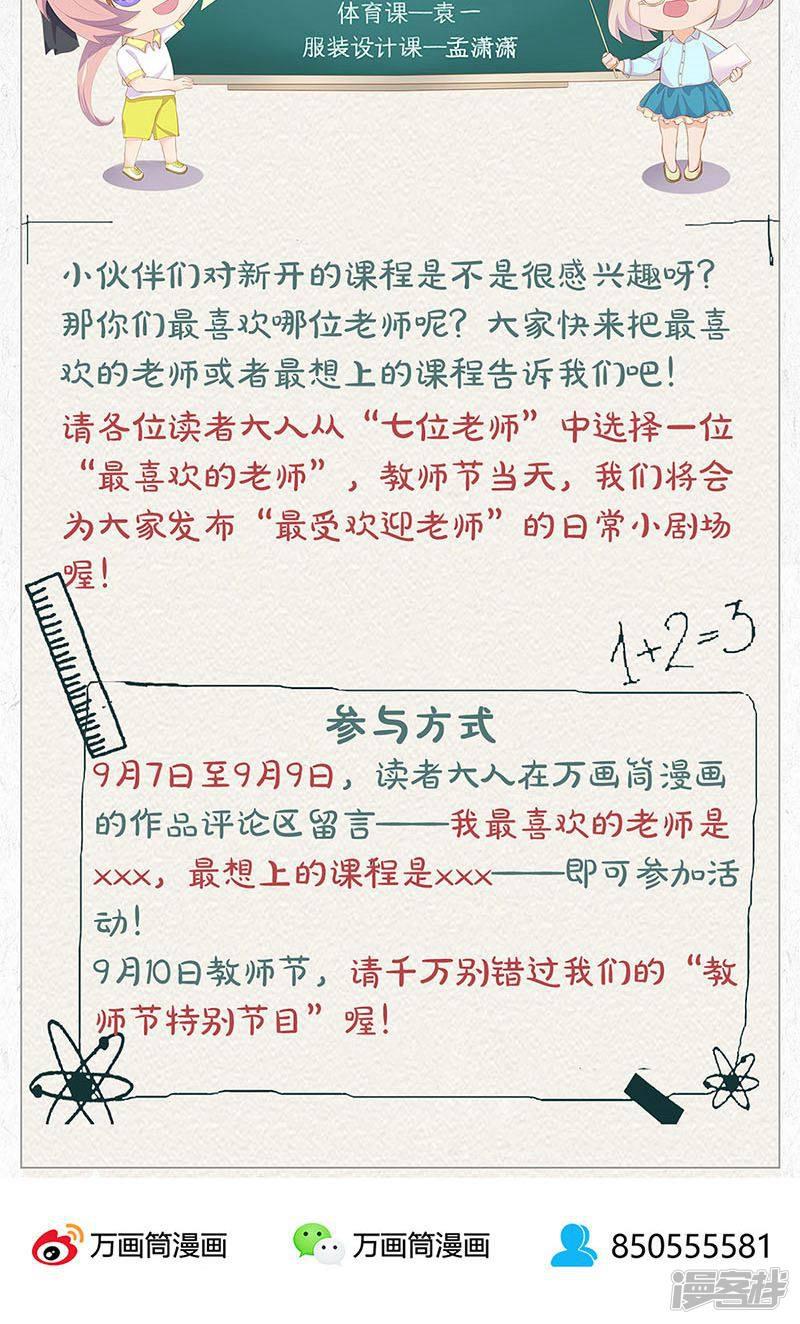 体育课—袁一
服装设计课—孟潇潇
小伙伴们对新开的课程是不是很感兴趣呀?
那你们最喜欢哪位老师呢? 大家快来把最喜
欢的老师或者最想上的课程告诉我们吧!
请各位读者大人从“七位老师”中选择一位
“最喜欢的老师”, 教师节当天, 我们将会
为大家发布“最受欢迎老师”的日常小剧场
喔!
1+2=3
参与方式
9月7日至9月9日, 读者大人在万画筒漫画
的作品评论区留言——我最喜欢的老师是
xxx, 最想上的课程是xxx——即可参加活
动!
9月10日教师节, 请千万别错过我们的“教
师节特别节目”喔!
万画筒漫画
万画筒漫画
850555581
漫客栈